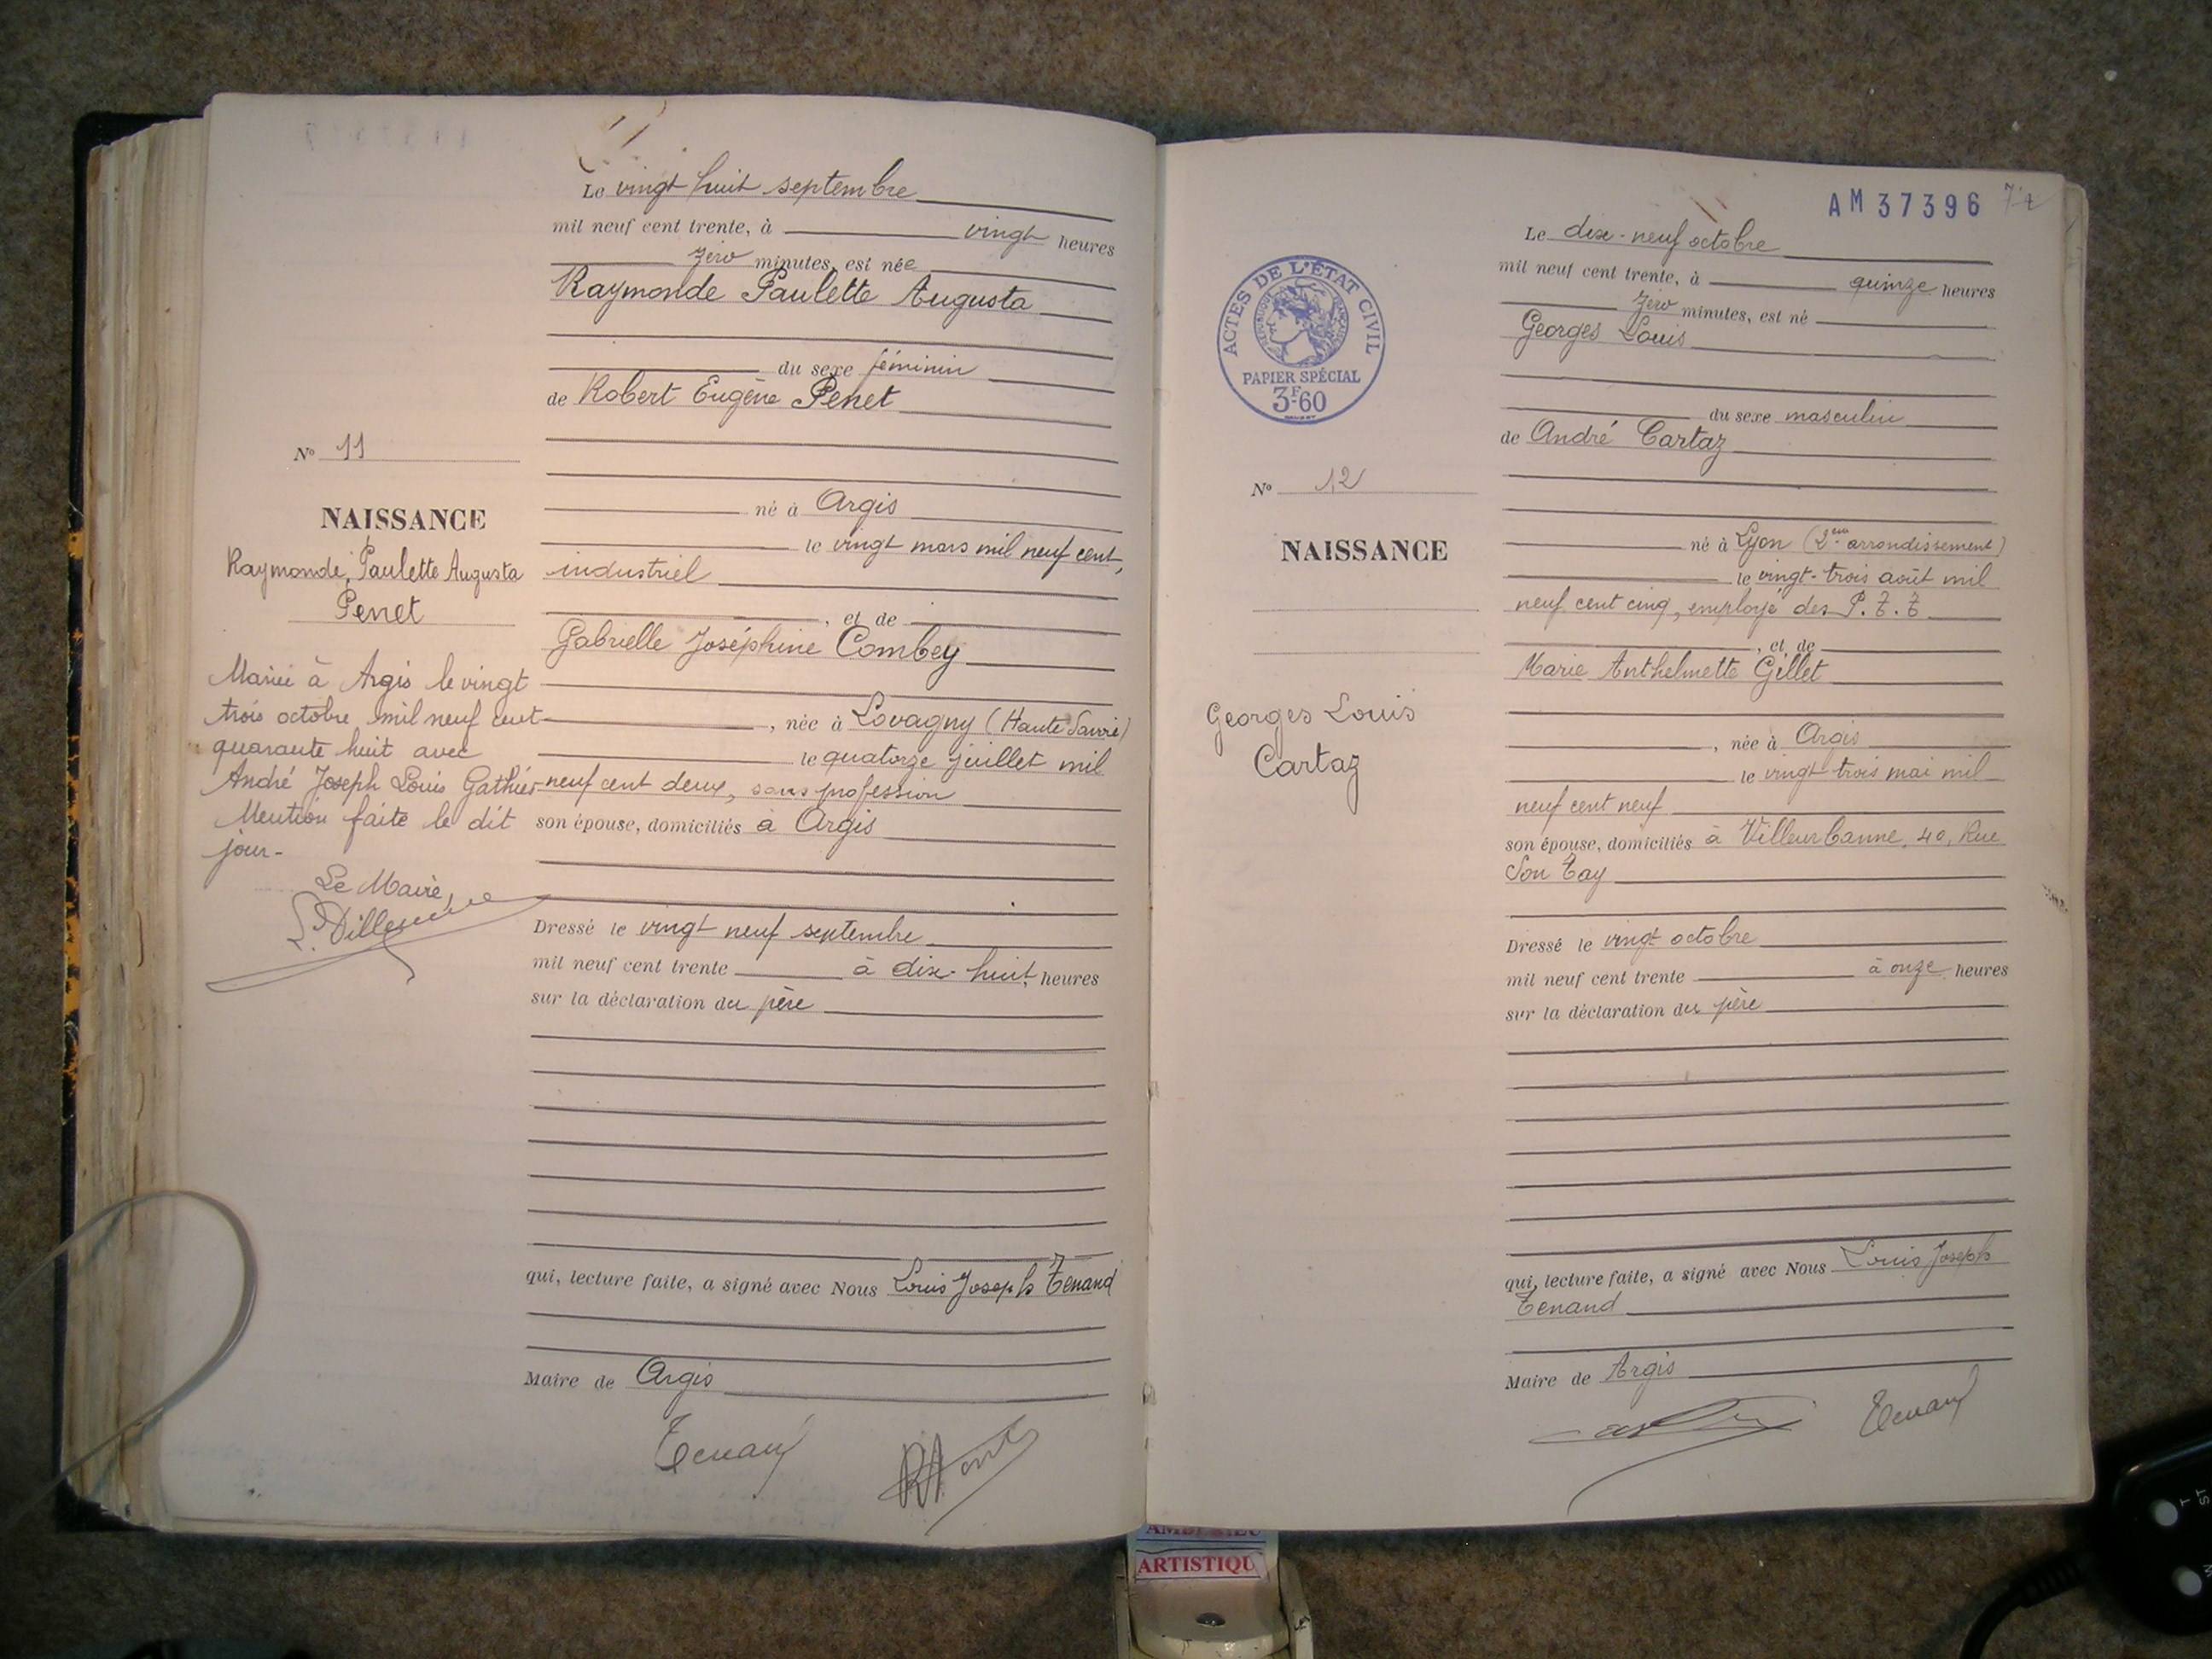 Le vingt huit septembre
mil neuf cent trente, à vingt heures
zéro minutes, est née
Raymonde Paulette Augusta
du sexe féminin
de Robert Eugène Penet
né à Argis
le vingt mars mil neuf cent,
industriel
, et de
Gabrielle Joséphine Combey
, née à Lovagny (Haute Savoie)
le quatorze juillet mil
neuf cent deux, sans profession
son épouse, domiciliés à Argis
Dressé le vingt neuf septembre
mil neuf cent trente à dix-huit heures
sur la déclaration du père
qui, lecture faite, a signé avec Nous Louis Joseph Tenand
Maire de Argis
Tenand
No 11
NAISSANCE
Raymonde, Paulette Augusta
Penet
Mariée à Argis le vingt
trois octobre mil neuf cent
quarante huit avec
André Joseph Louis Gathier
Mention faite le dit
jour-
Le Maire,
AM 37396
Le dix-neuf octobre
mil neuf cent trente, à quinze heures
zéro minutes, est né
Georges Louis
du sexe masculin
de André Cartaz
né à Lyon (2ème arrondissement)
le vingt-trois août mil
neuf cent cinq, employé des P.T.T
, et de
Marie Anthelmette Gillet
, née à Argis
le vingt trois mai mil
neuf cent neuf
son épouse, domiciliés à Villeurbanne, 40, Rue
Son Tay
Dressé le vingt octobre
mil neuf cent trente à onze heures
sur la déclaration du père
qui, lecture faite, a signé avec Nous Louis Joseph
Tenand
Maire de Argis
Tenand
ACTES DE L'ÉTAT CIVIL
PAPIER SPÉCIAL
3F.60
No 12
NAISSANCE
Georges Louis
Cartaz
ARTISTIQU